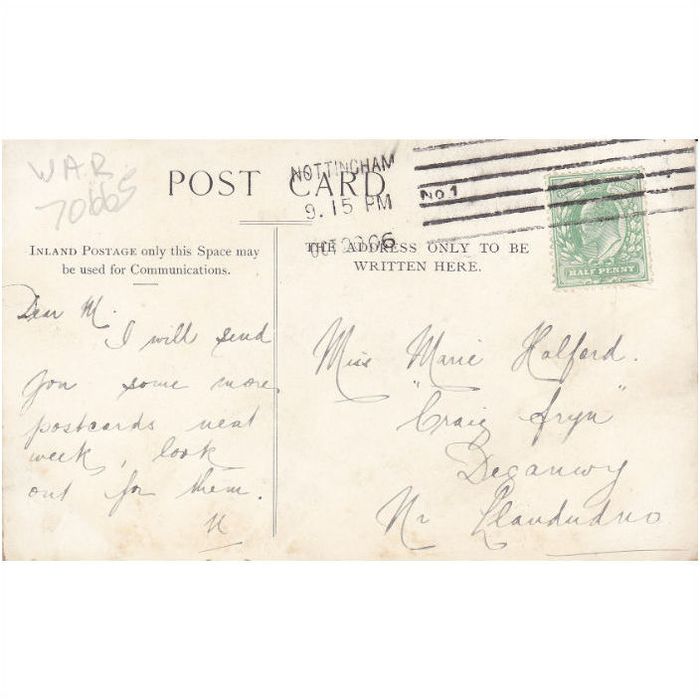 WAR
70665
POST CARD
NOTTINGHAM
9.15 PM
OC 23 06
No 1
HALF PENNY
INLAND POSTAGE only this Space may
be used for Communications.
THE ADDRESS ONLY TO BE
WRITTEN HERE.
Dear M.
I will send
you some more
postcards next
week, look
out for them.
Miss Marie Halford.
"Craig fryn"
Deganwy
Nr Llandudno